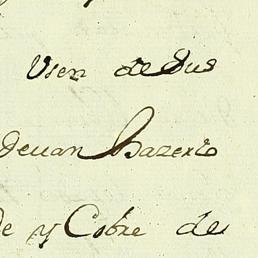 Vien de Sus
devan hazerlo
de y Cobre de